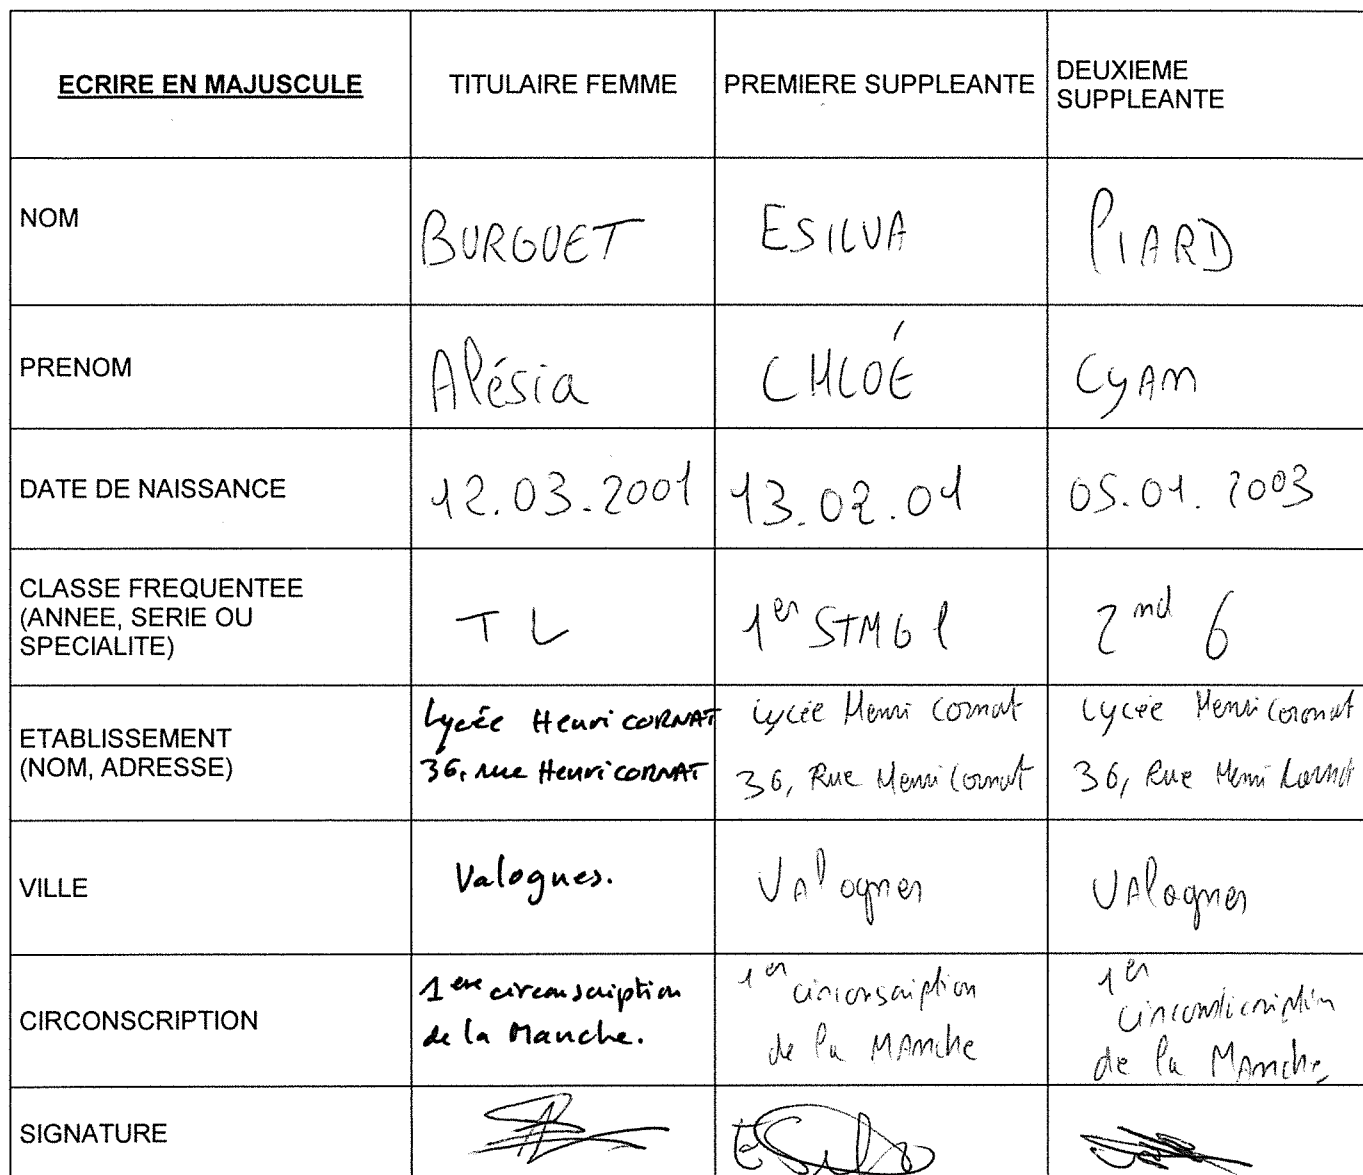 ECRIRE EN MAJUSCULE
TITULAIRE FEMME
PREMIERE SUPPLEANTE
DEUXIEME
SUPPLEANTE
NOM
BURGUET
ESILVA
PIARD
PRENOM
Alésia
CHLOÉ
CyAn
DATE DE NAISSANCE
12.03.2001
13.02.01
05.01.2003
CLASSE FREQUENTEE
(ANNEE, SERIE OU
SPECIALITE)
TL
1er STMG 1
2nd 6
ETABLISSEMENT
(NOM, ADRESSE)
Lycée Henri CORNAT
36, rue Henri CORNAT
Lycée Henri Cornat
36, Rue Henri Cornat
Lycée Henri Cornat
36, Rue Henri Cornat
VILLE
Valognes.
VAlognes
VAlognes
CIRCONSCRIPTION
1ere circonscription
de la Manche.
1er circonscription
de la MAnche
1er
circonscription
de la MAnche
SIGNATURE